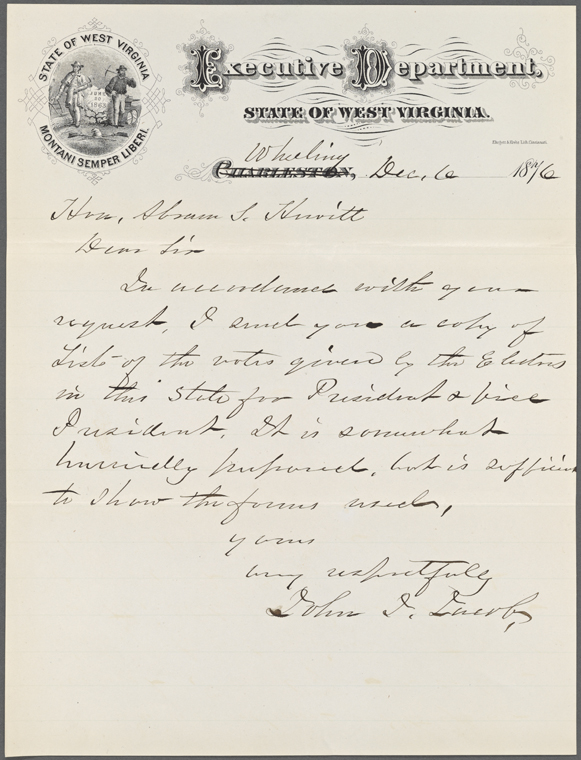 STATE OF WEST VIRGINIA
JUNE
20
1863
MONTANI SEMPER LIBERI.
Executive Department,
STATE OF WEST VIRGINIA.
Wheeling
CHARLESTON, Dec. 6 1876
Hon. Abram S. Hewitt
Dear Sir
In accordance with your
request, I send you a copy of
List of the votes given by the Electors
in this State for President & Vice
President. It is somewhat
hurriedly prepared, but is sufficient
to show the forms used,
yours
very respectfully
John J. Jacob,